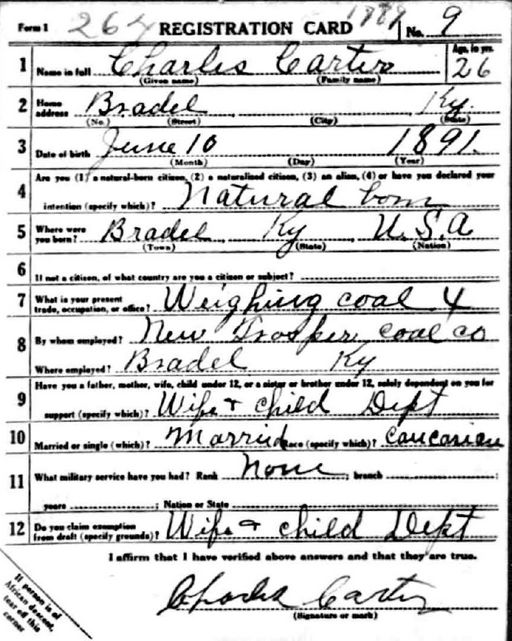 Form 1 264 REGISTRATION CARD 1889 No. 9
1 Name in full Charles Carter Age, in yrs. 26
(Given name) (Family name)
2 Home address Bradel Ky.
(No.) (Street) (City) (State)
3 Date of birth June 10 1891
(Month) (Day) (Year)
4 Are you (1) a natural-born citizen, (2) a naturalized citizen, (3) an alien, (4) or have you declared your
intention (specify which)? Natural born
5 Where were you born? Bradel Ky U.S.A
(Town) (State) (Nation)
6 If not a citizen, of what country are you a citizen or subject?
7 What is your present trade, occupation, or office? Weighing coal 4
8 By whom employed? New coal co
Where employed? Bradel Ky
9 Have you a father, mother, wife, child under 12, or a sister or brother under 12, solely dependent on you for
support (specify which)? Wife + child Dept
10 Married or single (which)? Married Race (specify which)? Caucasian
11 What military service have you had? Rank None ; branch
years ; Nation or State
12 Do you claim exemption from draft (specify grounds)? Wife + child Dept
I affirm that I have verified above answers and that they are true.
Charles Carter
(Signature or mark)
If person is of
African descent,
tear off this
corner